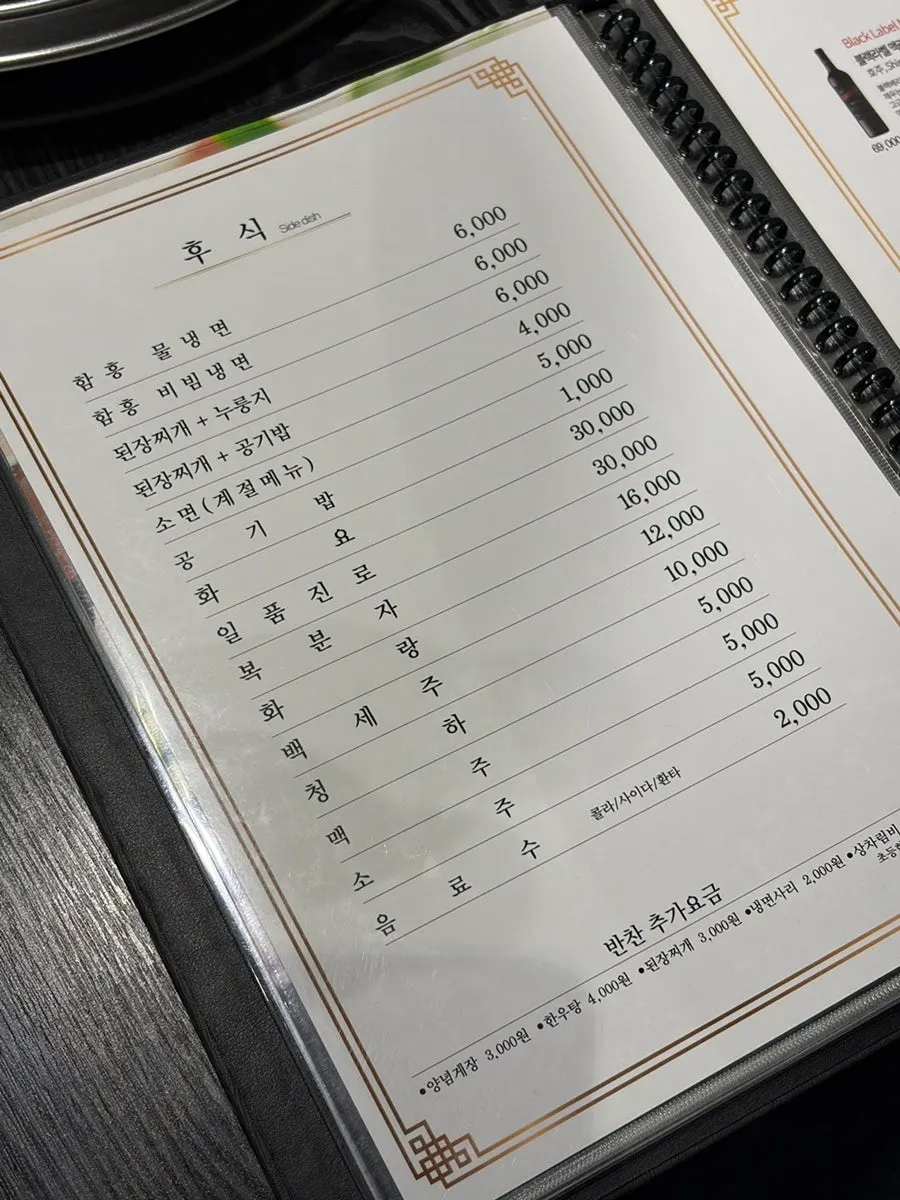 후 식 Side dish
함흥 물냉면 6,000
함흥 비빔냉면 6,000
된장찌개 + 누룽지 6,000
된장찌개 + 공기밥 4,000
소면(계절메뉴) 5,000
공 기 밥 1,000
화 요 30,000
일 품 진 로 30,000
복 분 자 16,000
화 랑 12,000
백 세 주 10,000
청 하 5,000
맥 주 5,000
소 주 5,000
음 료 수 콜라/사이다/환타 2,000
반찬 추가요금
•양념게장 3,000원 •한우탕 4,000원 •된장찌개 3,000원 •냉면사리 2,000원 •상차림비
Black Label
블랙라벨
호주,
69,000